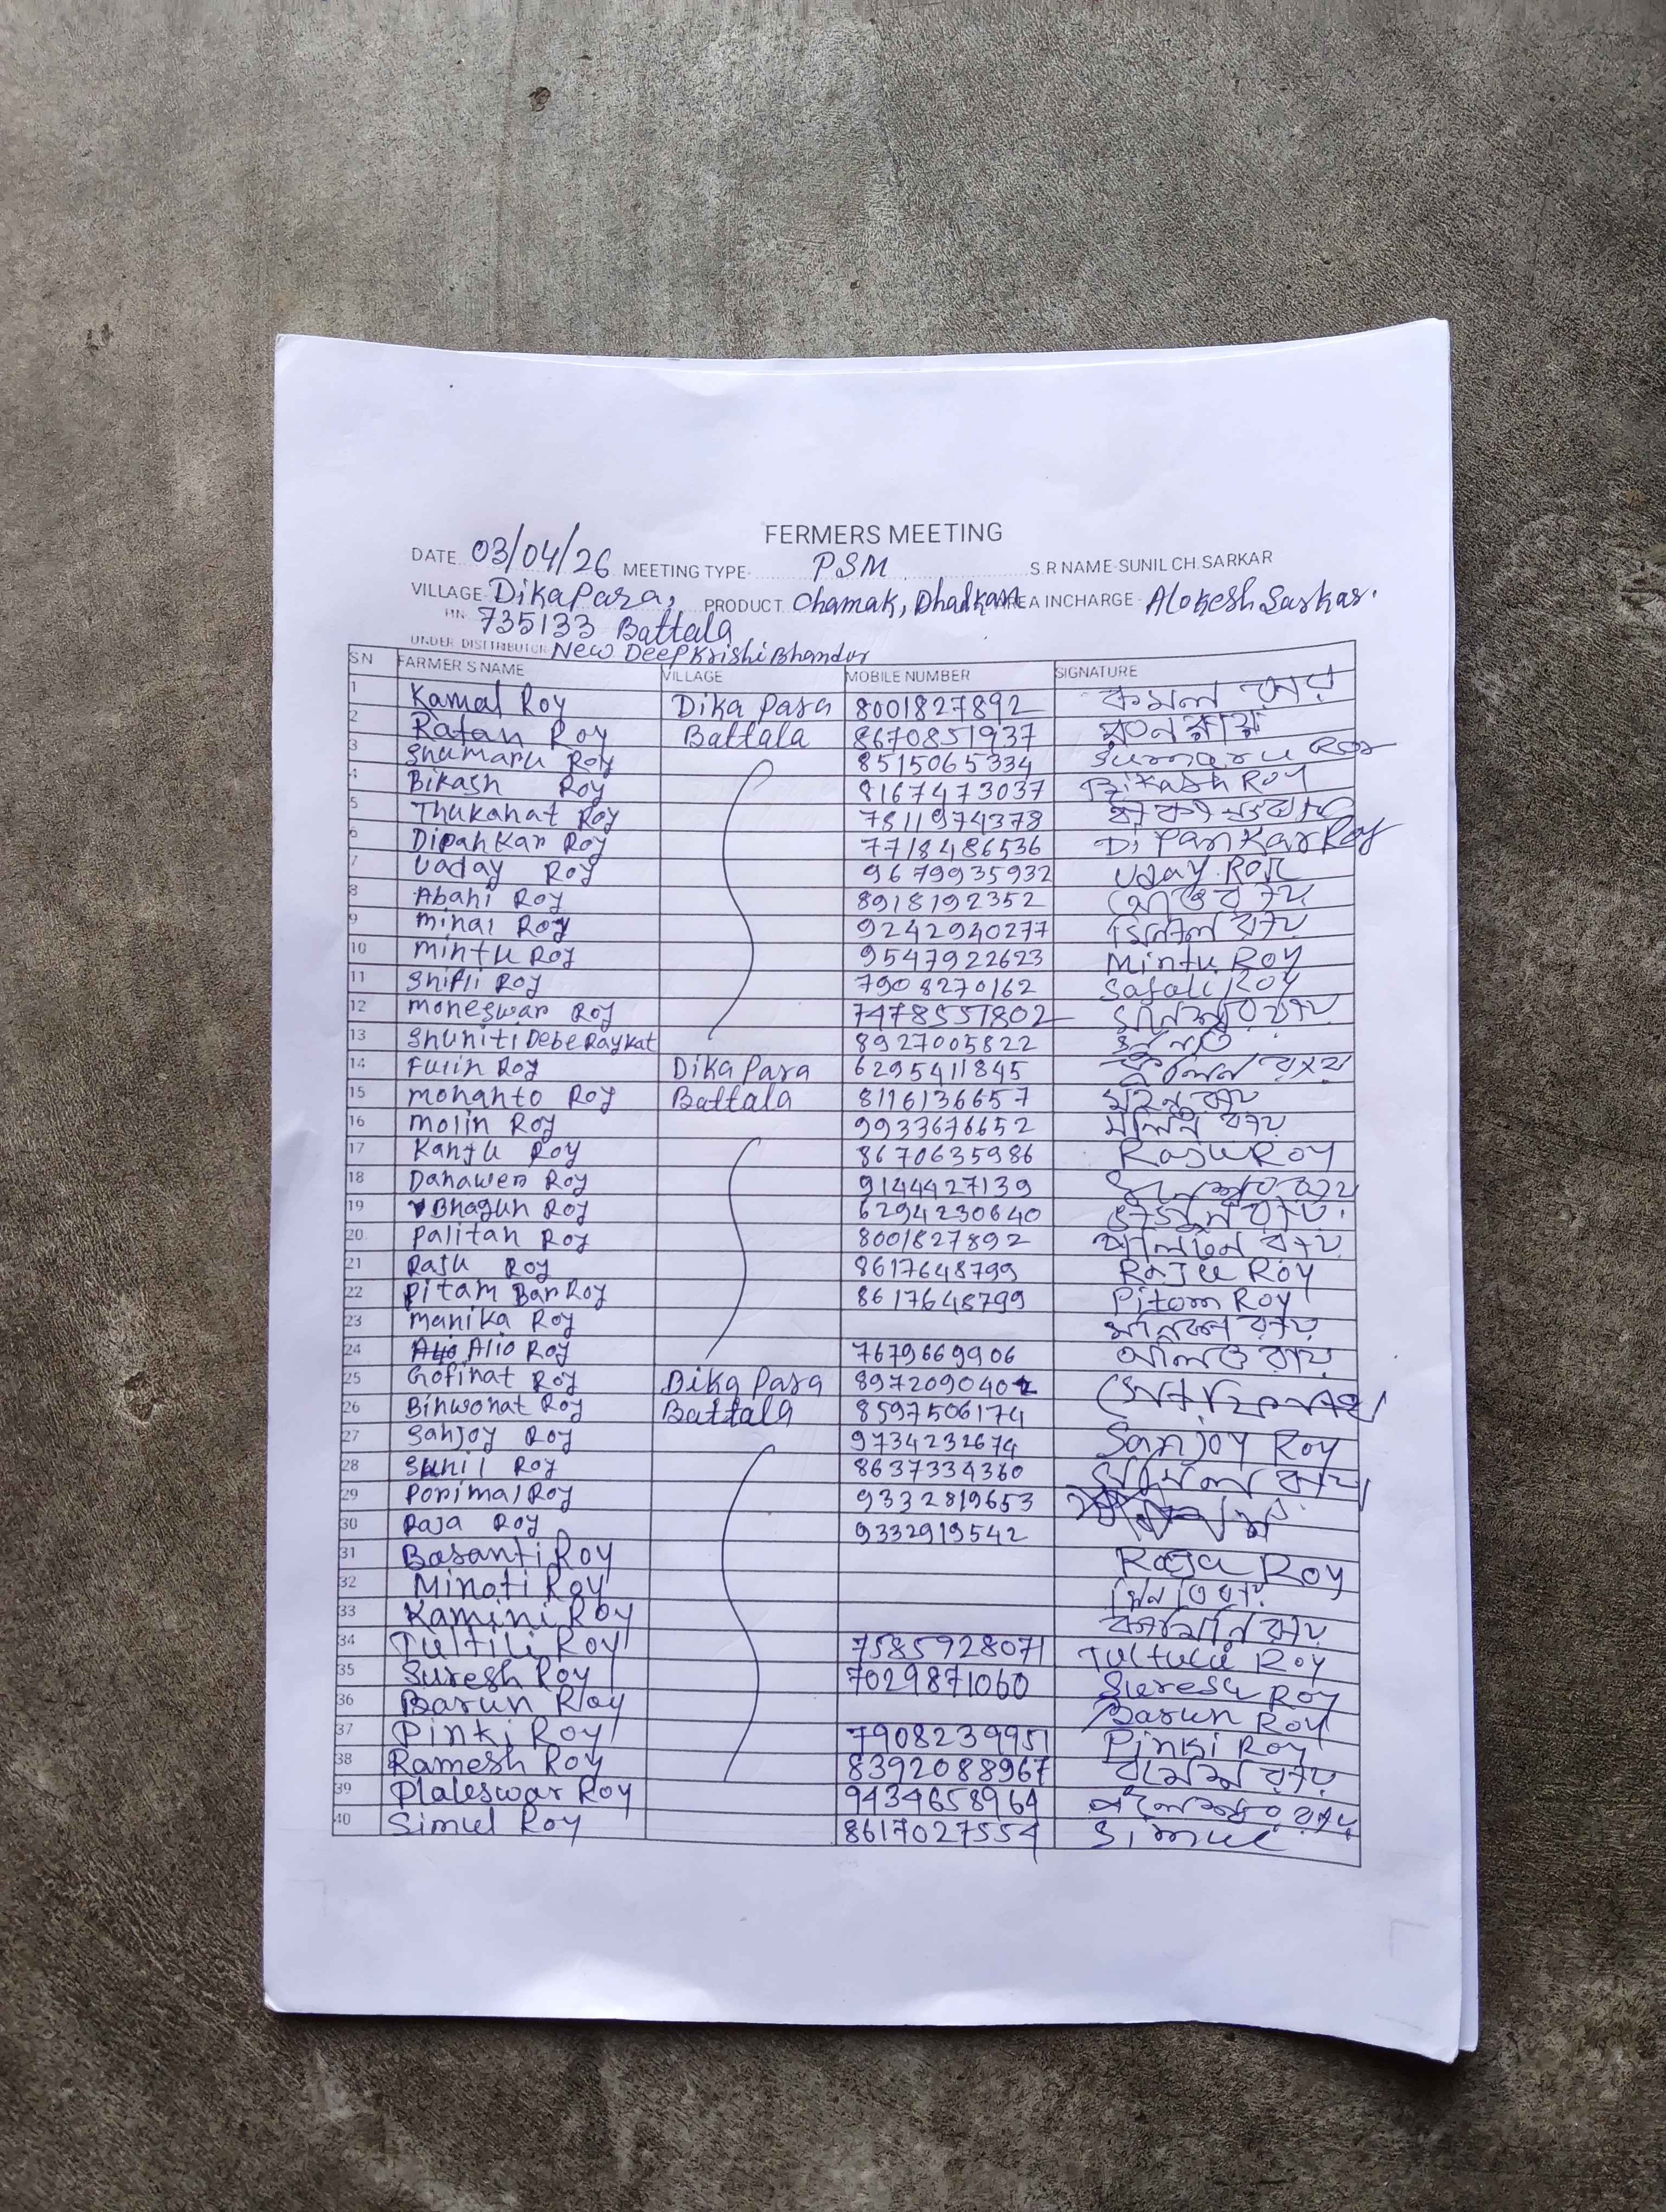 FERMERS MEETING
DATE 03/04/26 MEETING TYPE- PSM S.R NAME-SUNIL CH.SARKAR
VILLAGE- Dikapara, PRODUCT Chamak, Dhadkan AREA INCHARGE- Alokesh Sarkar.
735133 Battala
UNDER DISTTRIBUTOR New Deep Krishi Bhandar
SN FARMER S NAME VILLAGE MOBILE NUMBER SIGNATURE
1 Kamal Roy Dika Para 8001827892 কমল রায়
2 Ratan Roy Battala 8670851937 রতন রায়
3 Shumaru Roy 8515065334 Sumaru Roy
4 Bikash Roy 8167473037 Bikash Roy
5 Thukanat Roy 7811974378
6 Dipankar Roy 7718486536 Dipankar Roy
7 Uaday Roy 9679935932 Uday Roy
8 Abani Roy 8918192352 রায়
9 Minal Roy 9242940277 রায়
10 Mintu Roy 9547922623 Mintu Roy
11 Shifli Roy 7908270162 Safali Roy
12 Moneswar Roy 7478551802 রায়
13 Shuniti Debe Raykat 8927005822
14 Fulin Roy Dika Para 6295411845 রায়
15 Mohanto Roy Battala 8116136657 রায়
16 Molin Roy 9933676652 মলিন রায়
17 Kantu Roy 8670635986 Raju Roy
18 Danawer Roy 9144427139 রায়
19 Bhagun Roy 6294230640 রায়
20 Palitan Roy 8001827892 রায়
21 Raju Roy 8617648799 Raju Roy
22 Pitam Bar Roy 8617648799 Pitom Roy
23 Manika Roy রায়
24 Alio Roy 7679669906 রায়
25 Gofinat Roy Dika Para 897209040
26 Binwonat Roy Battala 8597506174
27 Sanjoy Roy 9734232674 Sanjoy Roy
28 Sunil Roy 8637334360 রায়
29 Porimal Roy 9332819653
30 Raja Roy 9332919542
31 Basanti Roy Raja Roy
32 Minoti Roy
33 Kamini Roy কামিনি রায়
34 Tultuli Roy 7585928071 Tultuli Roy
35 Suresh Roy 7029871060 Suresh Roy
36 Barun Roy Barun Roy
37 Pinki Roy 7908239951 Pinki Roy
38 Ramesh Roy 8392088967 রমেশ রায়
39 Plaleswar Roy 9434658964 রায়
40 Simul Roy 8617027554 Simul